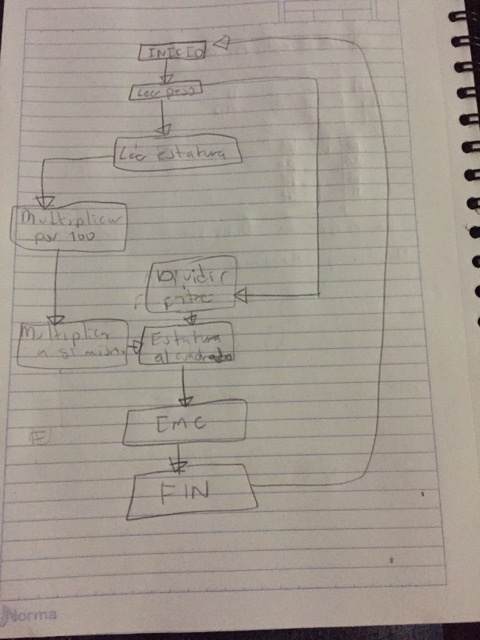 INICIO
Leer peso
Leer estatura
Multiplicar
por 100
Dividir
entre
Multiplica
a si mismo
Estatura
al cuadrado
IMC
FIN
E
Norma